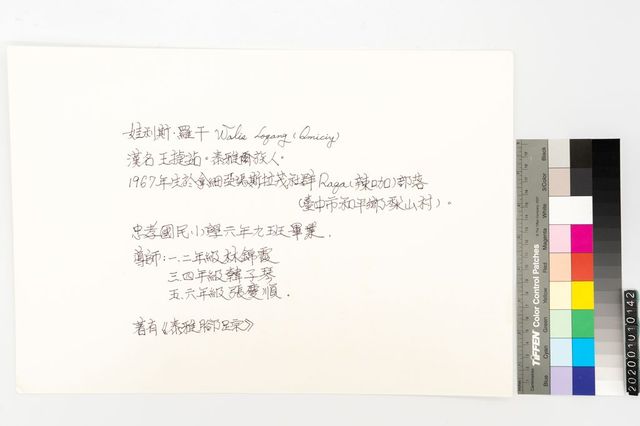 娃利斯·羅干 Walis Logang (Bmiciy)
漢名王捷茹。泰雅爾族人。
1967年生於 斯拉茂社群 Raga(辣咖)部落
(臺中市和平鄉梨山村)。
忠孝國民小學六年九班畢業.
導師:一.二年級林錦霞
三四年級韓子琴
五.六年級張慶順.
著有《泰雅腳蹤》
TIFFEN Color Control Patches
Blue Cyan Green Yellow Red Magenta White 3/Color Black
202001010142